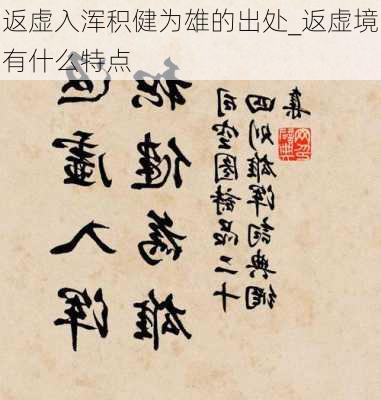 返虚入浑积健为雄的出处_返虚境
有什么特点
返虛入浑
积健為雄
司空图詩品二十
四则雄浑詞典網
集